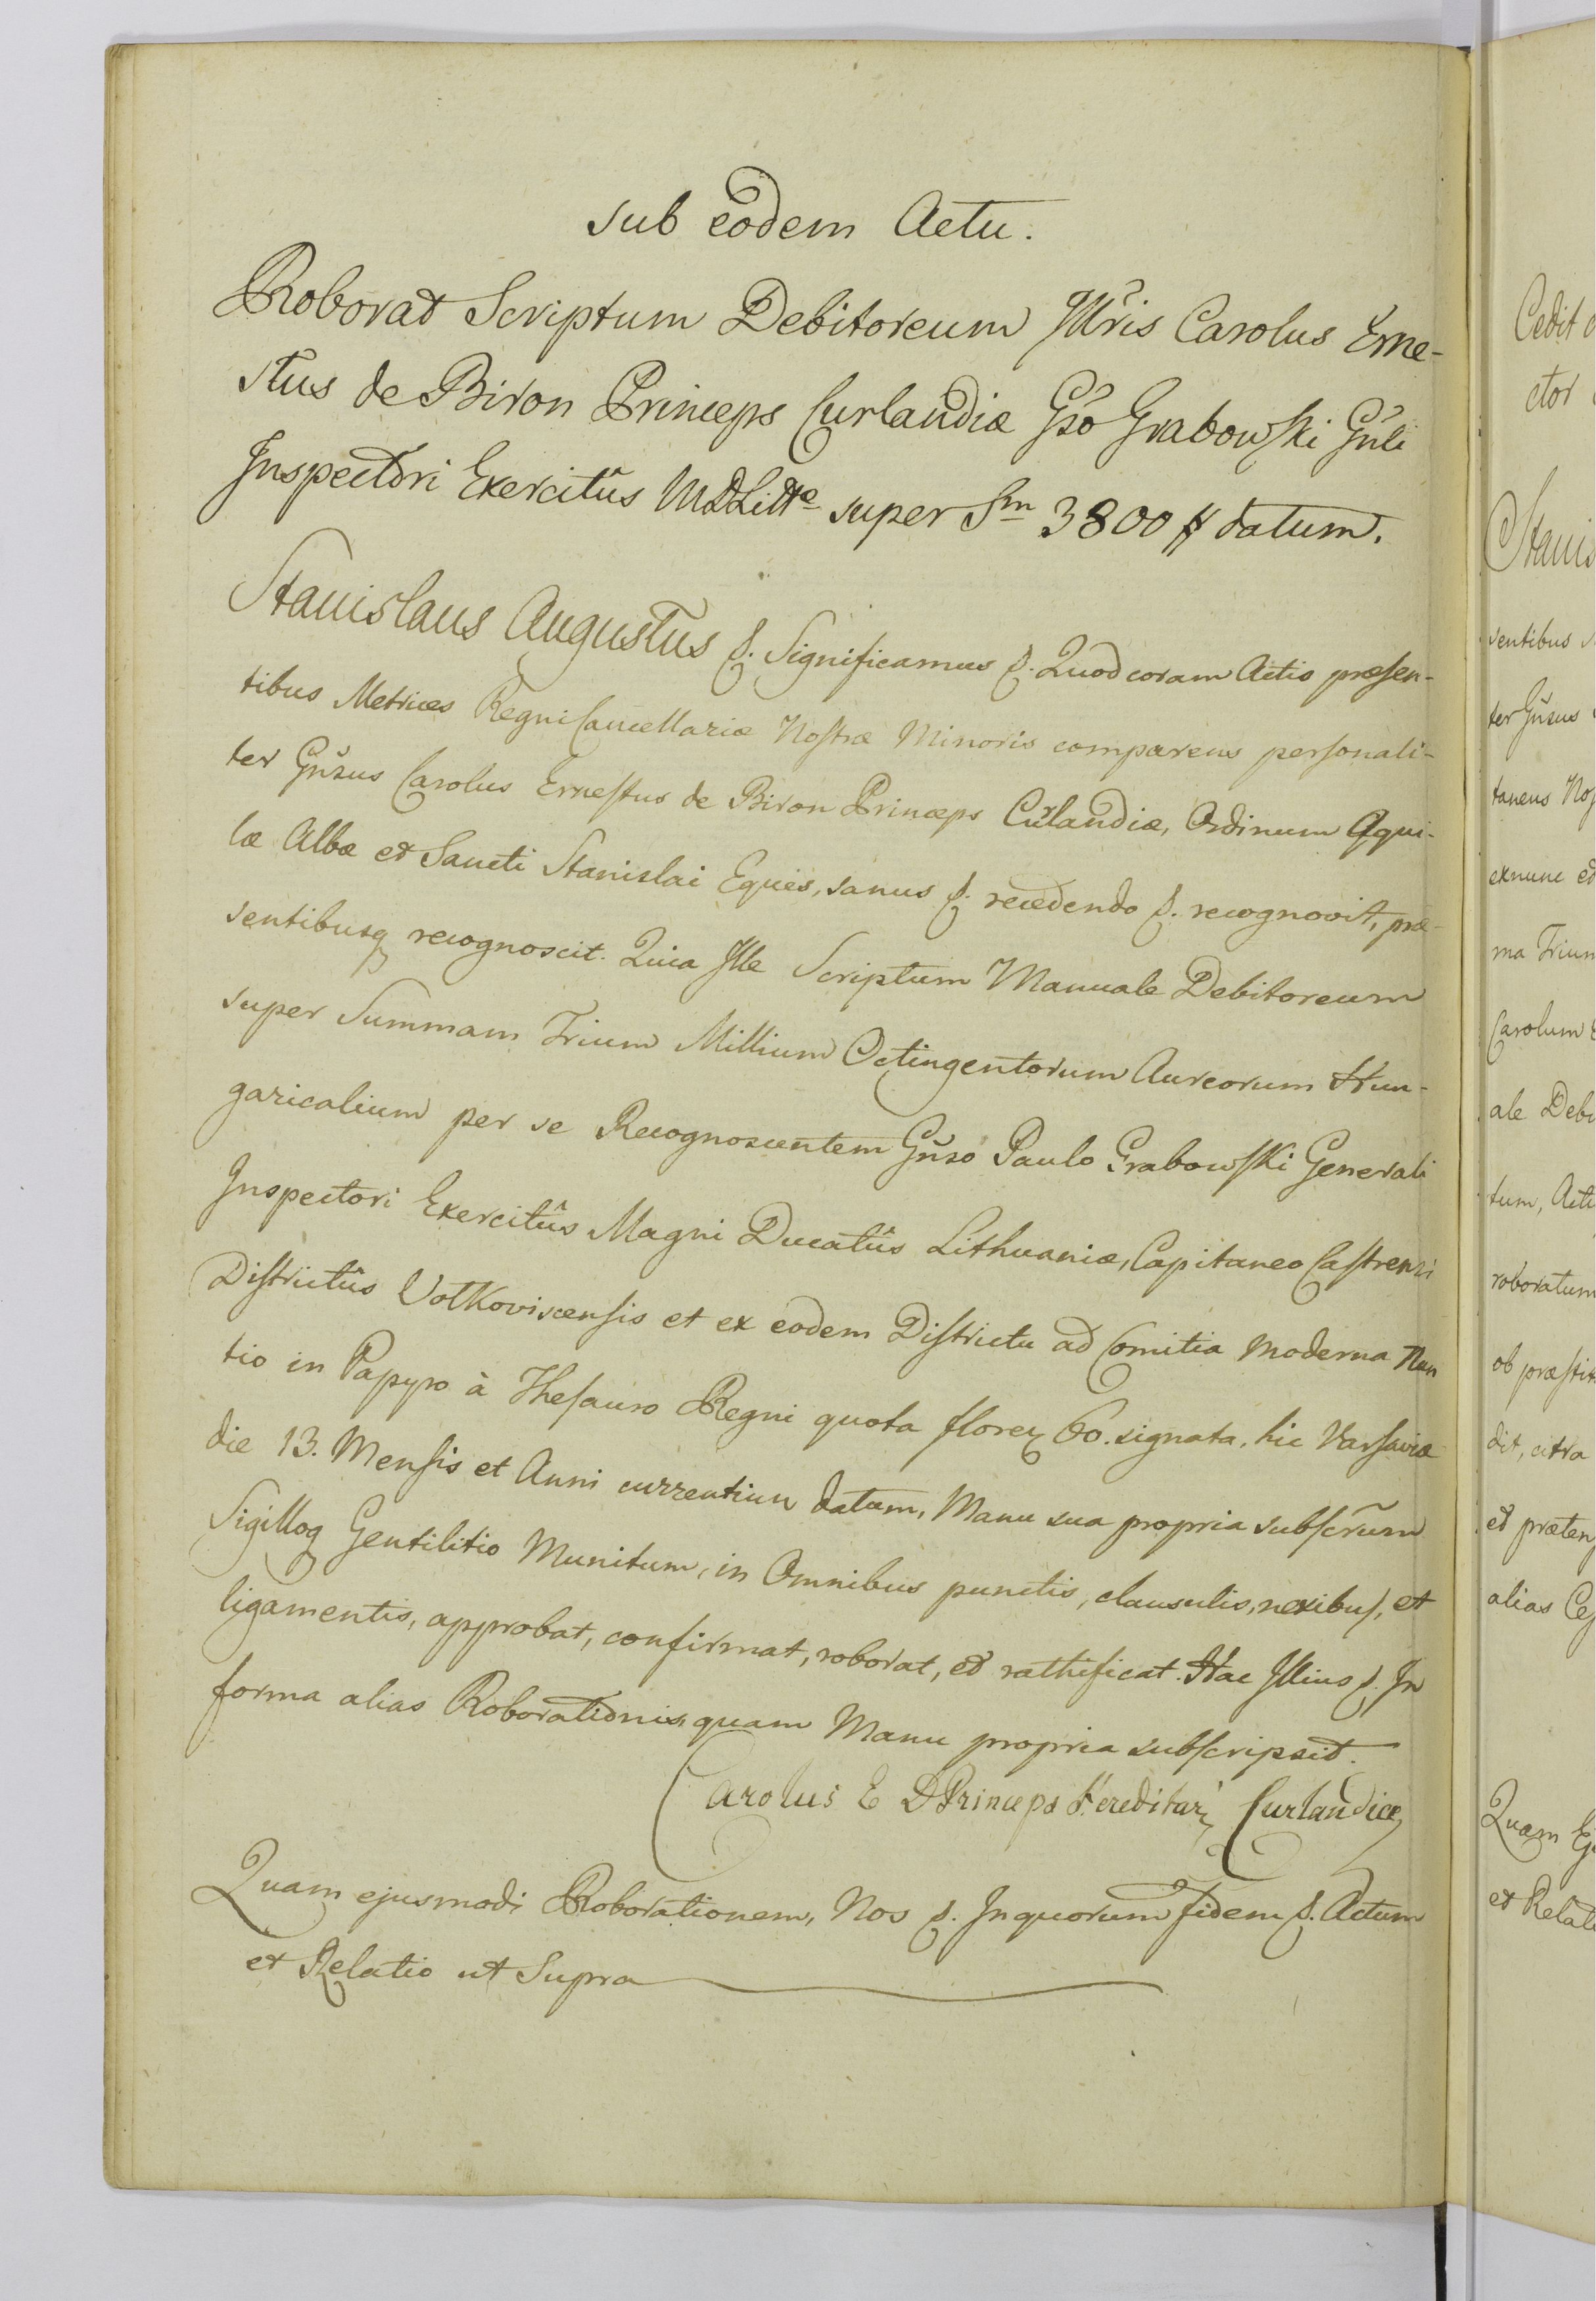 sub eodem Actu.
Roborat Scriptum Debitoreum Illris Carolus Erne-
stus de Biron Princeps Curlandiæ Gso Grabowski Gnli
Inspectori Exercitûs MDLittæ super Sm 3800 # datum.
Stanislaus Augustus &. Significamus &. Quod coram Actis præsen-
tibus Metrices Regni Cancellariæ Nostræ Minoris comparens personali-
ter Gnsus Carolus Ernestus de Biron Princeps Curlandiæ, Ordinum Aqui-
læ Albæ et Sancti Stanislai Eques, sanus &. recedendo &. recognovit, præ-
sentibusq recognoscit. Quia Ille Scriptum Manuale Debitoreum
super Summam Trium Millium Octingentorum Aureorum Hun-
garicalium per se Recognoscentem Gnso Paulo Grabowski Generali
Inspectori Exercitûs Magni Ducatûs Lithuaniæ, Capitaneo Castrensi
Districtûs Volkoviscensis et ex eodem Districtu ad Comitia moderna Nun
tio in Papyro à Thesauro Regni quota floren 60. signata, hic Varsaviæ
die 13. Mensis et Anni currentium datum, Manu sua propria subscrum
Sigilloq Gentilitio Munitum, in Omnibus punctis, clausulis, nexibus, et
ligamentis, approbat, confirmat, roborat, et rathificat. Hac Illius &. In
forma alias Roborationis, quam Manu propria subscripsit.
Carolus E D Princeps Hereditari Curlandiæ
Quam ejusmodi Roborationem, Nos &. In quorum fidem &. Actum
et Relatio ut Supra
Cedit
ctor
Stanis
sentibus
ter Gnsus
taneus Nos
exnunc et
ma Trium
Carolum
ale Debi
tum, Acti
roboratum
ob præstit
dit, citra
et præten
alias Ces
Quam Ej
et Relati